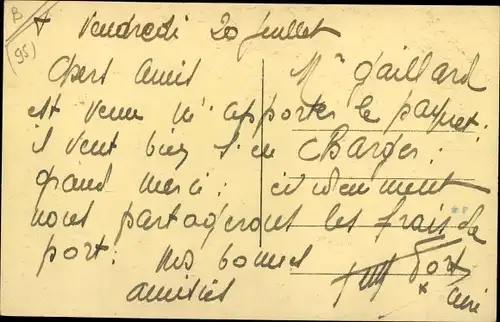 B
(95)
+ Vendredi 20 juillet
Chers amis Mr Gaillard
est venu m'apporter le paquet.
il veut bien s'en charger:
grand merci: évidemment
nous partagerons les frais de
port: mes bonnes
amitiés